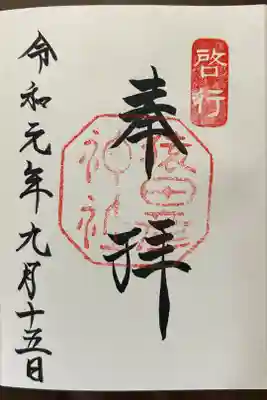 啓行
奉拝
猿田彦
神社
令和元年九月十五日